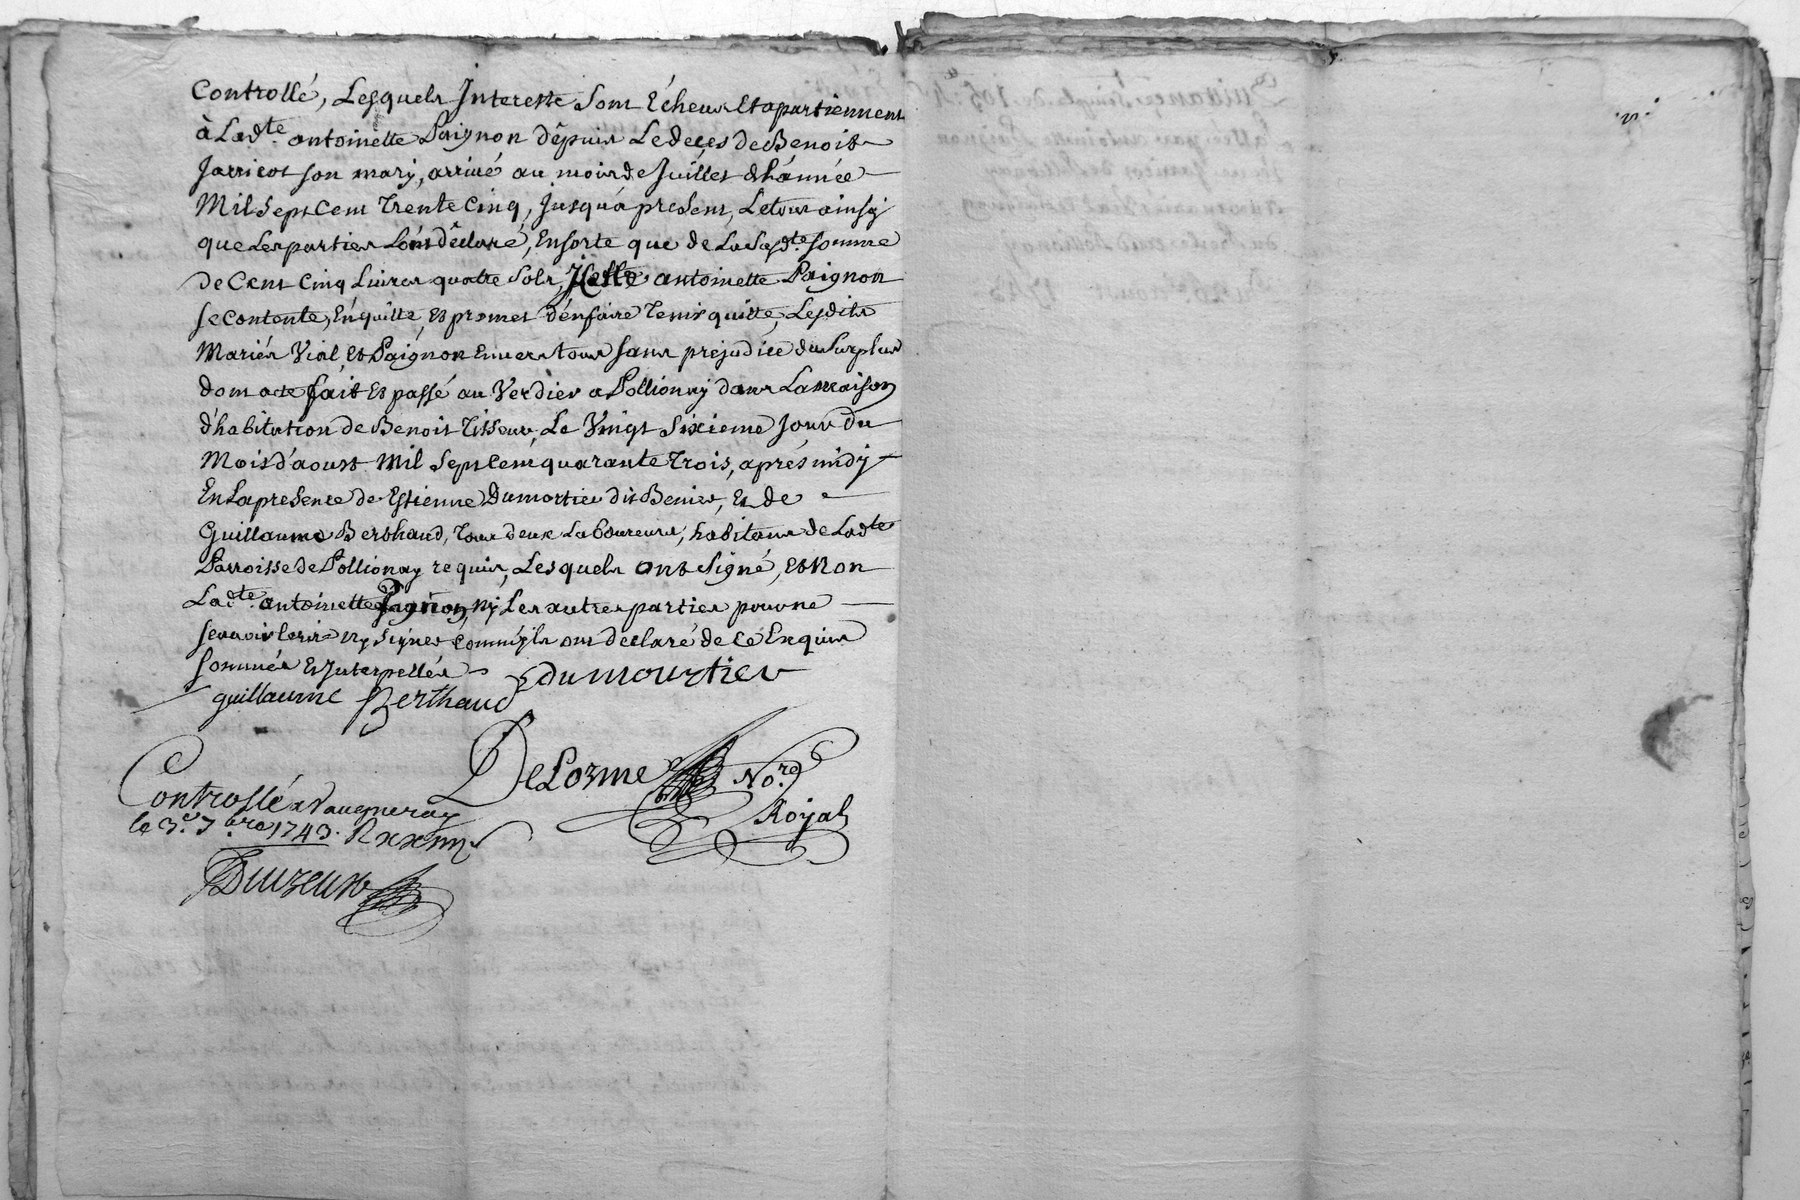 Controllé, Lesquels Interests sont Écheus Et apartiennent
à Lad.te antoinette Paignon dêpuis Le deçes de Benoist
Jarricot son mary, arrivé au mois de Juillet de l'année
Mil Sept Cent Trente Cinq, Jusqu'à present, Le tout ainsy
que Les parties L'ont dêclaré, Ensorte que de La Susd.te somme
de Cent Cinq Livres quatre sols, Icelle antoinette Paignon
se contente, En quitte, Et promet d'en faire Tenir quitte, Lesdits
Mariés Vial, Et Paignon Envers tous sans prejudice du surplus
dont acte fait Et passé au Verdier a Pollionay dans La maison
d'habitation de Benoit Tisseur, Le Vingt Sixieme Jour du
Mois d'aoust Mil Sept Cent quarante Trois, aprés midy
En La presence de Estienne Dumortier dit Benier, Et de
Guillaume Berthaud, Tous deux Laboureurs, habitans de Lad.te
Parroisse de Pollionay requis, Lesquels ont signé, Et Non
Lad.te antoinette Paignon, ny Les autres parties pour ne
sçavoir Ecrire ny signer comm'jls ont declaré de ce Enquis
sommés Et Interpellés
E dumourtier
guillaume Berthaud
DeLorme No.re
Royal
Controllé a Vaugneray
le 3.e 7.bre 1743. R